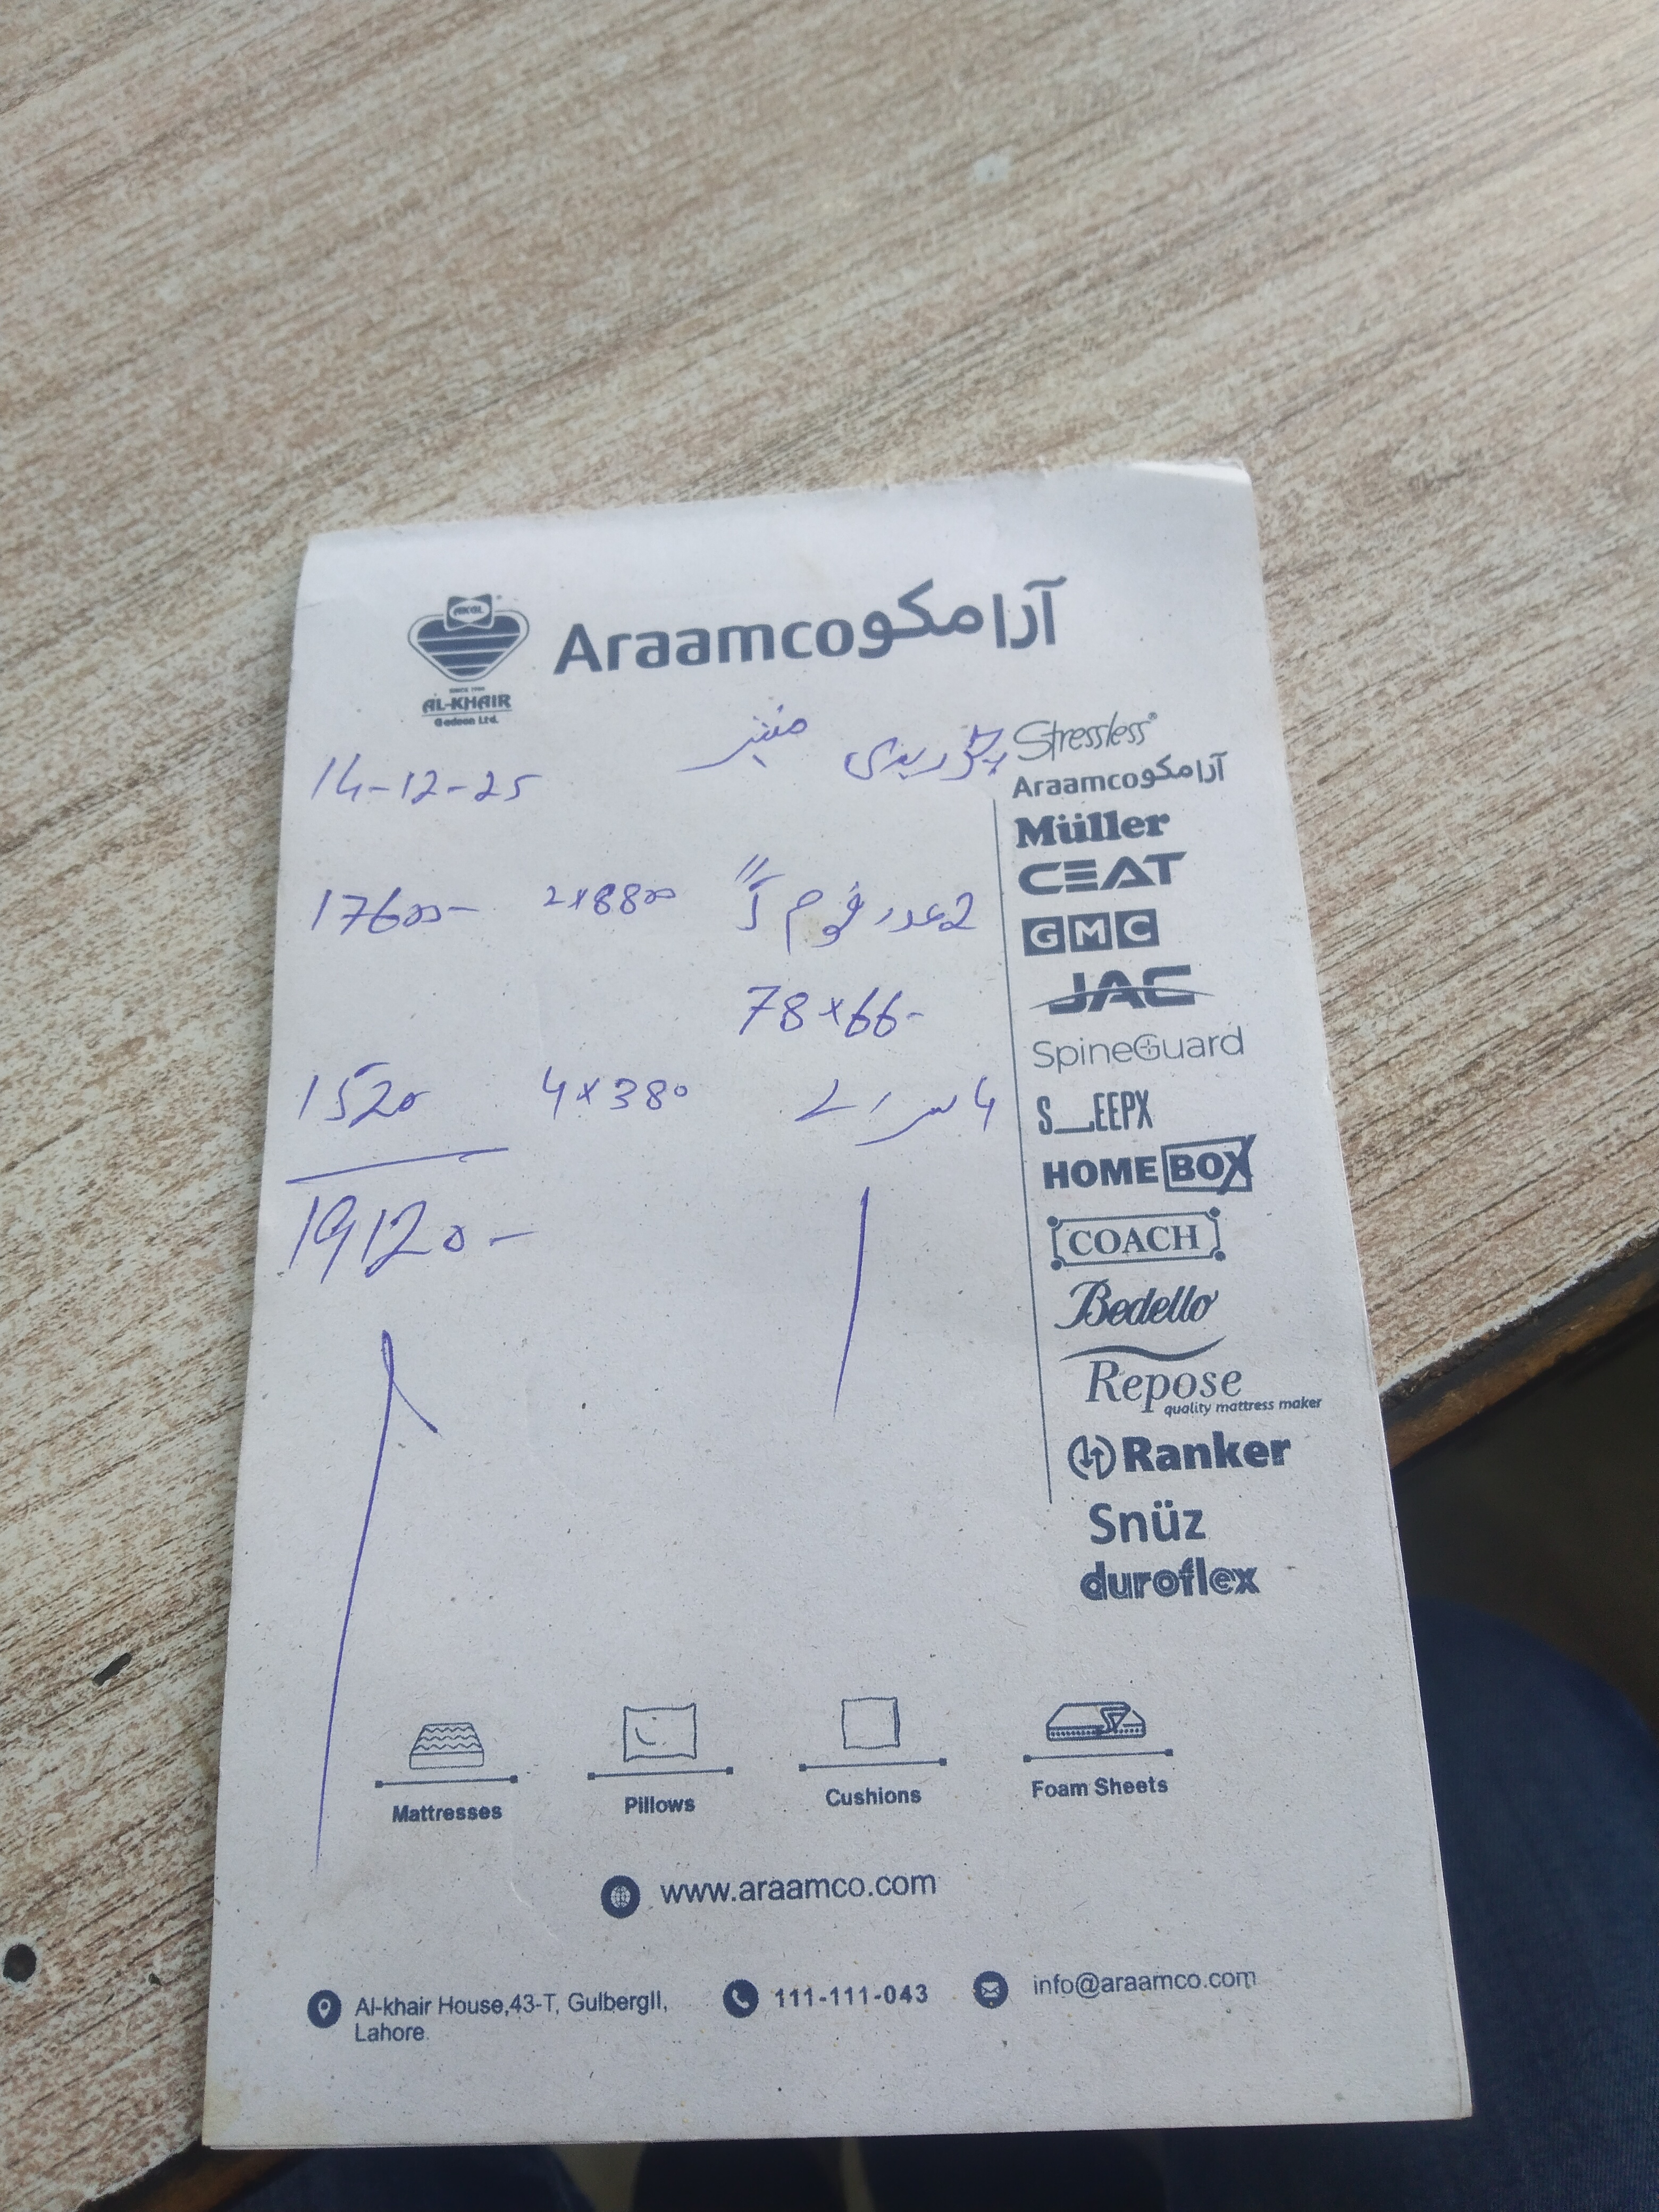 AKGL
SINCE 1990
AL-KHAIR
Gadoon Ltd.
Araamco آرامکو
14-12-25
17600- 2x8800 2 عدد فوم 5"
78x66-
1520 4x380 4 سرانے
19120-
Stressless®
Araamco آرامکو
Müller
CEAT
GMC
JAC
SpineGuard
S__EEPX
HOMEBOX
COACH
Bedello
Repose
quality mattress maker
Ranker
Snüz
duroflex
Mattresses Pillows Cushions Foam Sheets
www.araamco.com
Al-khair House,43-T, GulbergII,
Lahore.
111-111-043
info@araamco.com